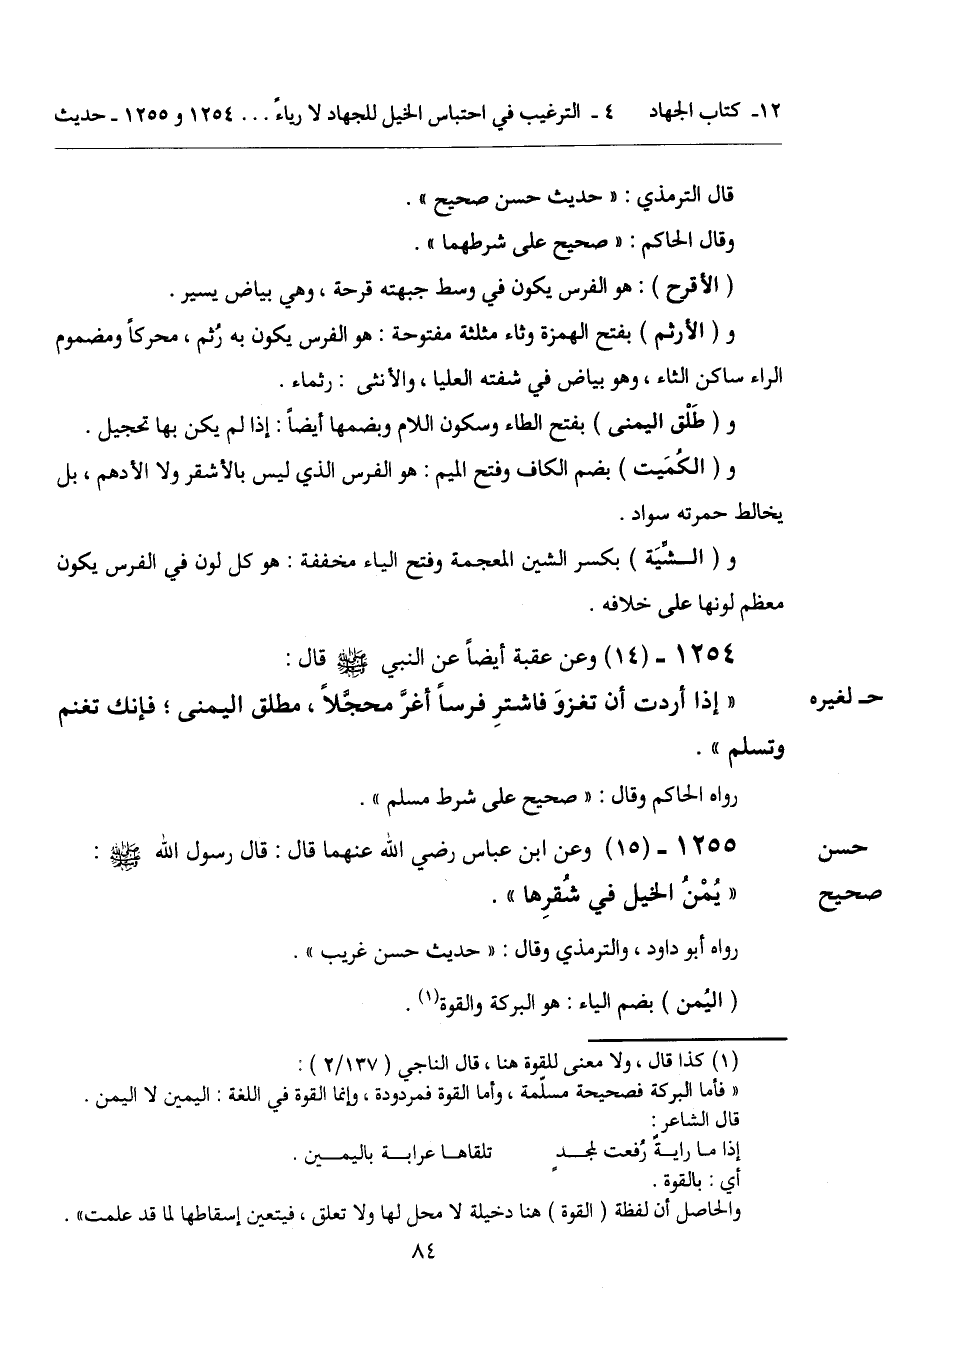 ١٢ـ كتاب الجهاد ٤ ـ الترغيب في احتباس الخيل للجهاد لا رياءً ... ١٢٥٤ و ١٢٥٥ ـ حديث
قال الترمذي : « حديث حسن صحيح » .
وقال الحاكم : « صحيح على شرطهما » .
( الأقرح ) : هو الفرس يكون في وسط جبهته قرحة ، وهي بياض يسير .
و ( الأرثم ) بفتح الهمزة وثاء مثلثة مفتوحة : هو الفرس يكون به رُثم ، محركاً ومضموم
الراء ساكن الثاء ، وهو بياض في شفته العليا ، والأنثى : رثماء .
و ( طَلْق اليمنى ) بفتح الطاء وسكون اللام وبضمها أيضاً : إذا لم يكن بها تحجيل .
و ( الكُمَيت ) بضم الكاف وفتح الميم : هو الفرس الذي ليس بالأشقر ولا الأدهم ، بل
يخالط حمرته سواد .
و ( الـشِّيَة ) بكسر الشين المعجمة وفتح الياء مخففة : هو كل لون في الفرس يكون
معظم لونها على خلافه .
١٢٥٤ ـ (١٤) وعن عقبة أيضاً عن النبي ﷺ قال :
حـ لغيره « إذا أردت أن تغزوَ فاشترِ فرساً أغرَّ محجَّلاً ، مطلق اليمنى ؛ فإنك تغنم
وتسلم » .
رواه الحاكم وقال : « صحيح على شرط مسلم » .
حسن ١٢٥٥ ـ (١٥) وعن ابن عباس رضي الله عنهما قال : قال رسول الله ﷺ :
صحيح « يُمْنُ الخيل في شُقرِها » .
رواه أبو داود ، والترمذي وقال : « حديث حسن غريب » .
( اليُمن ) بضم الياء : هو البركة والقوة(١) .
(١) كذا قال ، ولا معنى للقوة هنا ، قال الناجي ( ٢/١٣٧ ) :
« فأما البركة فصحيحة مسلّمة ، وأما القوة فمردودة ، وإنما القوة في اللغة : اليمين لا اليمن .
قال الشاعر :
إذا مـا رايـةٌ رُفعت لمجـــدٍ تلقاهـا عرابـــة باليمـــين .
أي : بالقوة .
والحاصل أن لفظة ( القوة ) هنا دخيلة لا محل لها ولا تعلق ، فيتعين إسقاطها لما قد علمت» .
٨٤